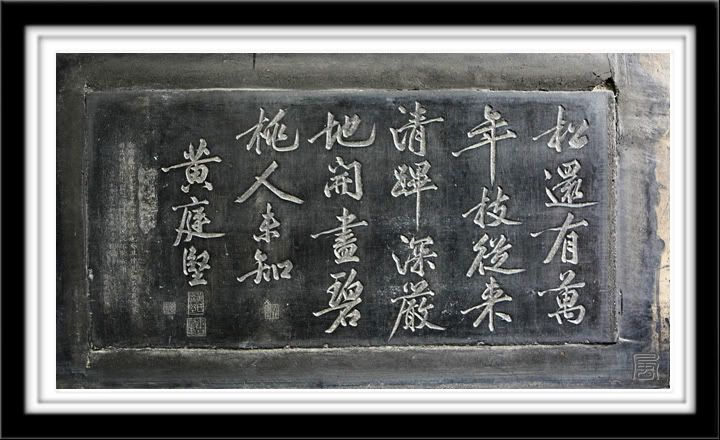 松還有萬
年枝從來
清輝深嚴
地開盡碧
桃人未知
黃庭堅